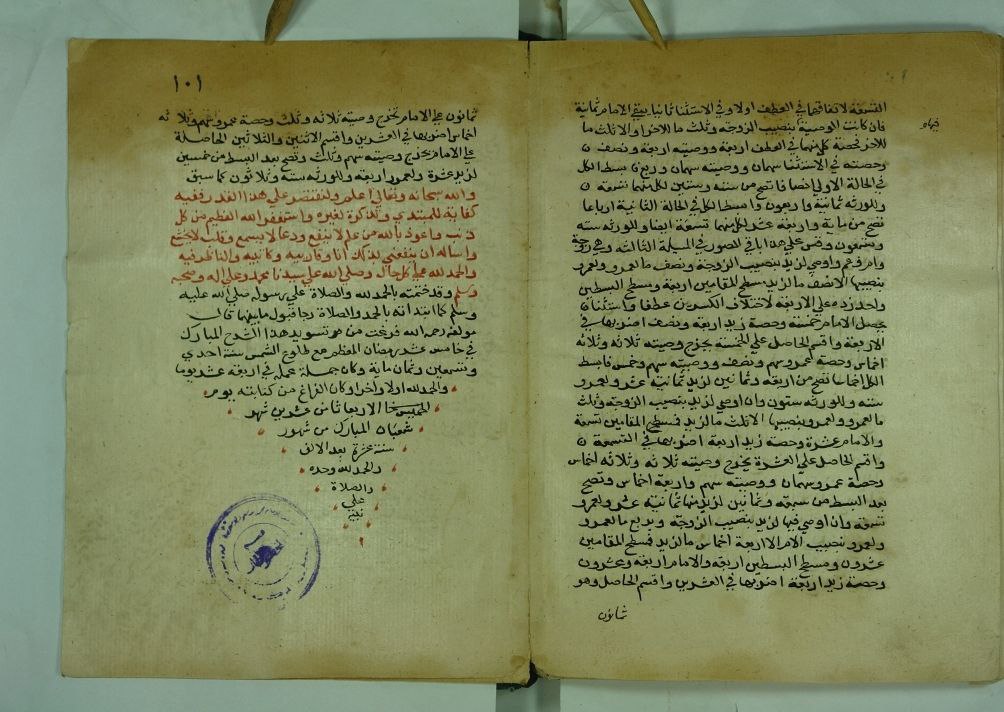 التسعة لاتفاقهما في العطف اولا وفي الاستثنا ثمانيا يبقي الامام ثمانية
فان كانت الوصية بنصيب الزوجة وثلث ما للاخر او الاثلث ما
للاخر فحصة كل منهما في العطف اربعة ووصيته اربعة ونصف
وحصته في الاستثنا سهمان ووصيته سهمان وربع بسط الكل
في الحالة الاولي انصافا تصح من ستة وستين لكل منهما تسعة
وللورثة ثمانية واربعون وابسط الكل في الحالة الثانية ارباعا
تصح من ماية واربعة عشر لكل منهما تسعة ايضا وللورثة ستة
وتسعون وقس علي هذا باقي الصور في المسيلة الثالثة وهي زوجة
وام وعم واوصي لزيد بنصيب الزوجة ونصف ما لعمرو ولعمرو
بنصيبها الا نصف ما لزيد سطح المقامين اربعة ومسطح البسطين
واحد زده علي الاربعة لاختلاف الكسرين عطفا واستثنا
يحصل الامام خمسة وحصة زيد اربعة ونصف اضربها في
الاربعة واقسم الحاصل علي الخمسة يخرج وصيته ثلاثة وثلاثة
اخماس وحصة لعمرو سهم ونصف ووصيته سهم وخمس فابسط
الكل اخماسا تصح من اربعة وثمانين لزيد ثمانية عشر ولعمرو
ستة وللورثة ستون وان اوصي لزيد بنصيب الزوجة وثلث
ما لعمرو ولعمرو بنصيبها الا ثلث ما لزيد فسطح المقامين تسعة
والامام عشرة وحصة زيد اربعة اضربها في التسعة
واقسم الحاصل علي العشرة يخرج وصيته ثلاثة وثلاثة اخماس
وحصة عمرو سهمان ووصيته سهم واربعة اخماس وتصح
بعد البسط من سبعة وثمانين لزيد منها ثمانية عشر ولعمرو
تسعة وان اوصي فيها لزيد بنصيب الزوجة وبربع ما لعمرو
ولعمرو بنصيب الام الا اربعة اخماس ما لزيد فسطح المقامين
عشرون ومسطح البسطين اربعة والامام اربعة وعشرون
وحصة زيد اربعة اضربها في العشرين واقسم الحاصل وهو
ثمانون
١٠١
ثمانون علي الامام تخرج وصيته ثلاثة وثلث وحصة عمرو سهم وثلاثة
اخماس اضربها في العشرين واقسم الاثنين والثلاثين الحاصلة
علي الامام يخرج وصيته سهم وثلث وتصح بعد البسط من خمسين
لزيد عشرة ولعمرو اربعة وللورثة ستة وثلاثون كما سبق
والله سبحانه وتعالي اعلم ولنقتصر علي هذا القدر ففيه
كفاية للمبتدي وتذكرة لغيره واستغفر الله العظيم من كل
ذنب واعوذ بالله من علم لا ينفع ودعا لا يسمع وقلب لا يخشع
واساله ان ينفعني بذلك انا وقاريه وكاتبه والناظر فيه
والحمد لله علي كل حال وصلي الله علي سيدنا محمد وعلي اله وصحبه
وسلم وقد ختمته بالحمد لله والصلاة علي رسوله صلي الله عليه
وسلم كما ابتداته بالحمد والصلاة رجا قبول ما بينهما قال
مولفه رحمه الله فرغت من تسويد هذا الشرح المبارك
في خامس عشر رمضان المعظم مع طلوع الشمس سنة احدي
وتسعين وثمان ماية وكان جملة عمله في اربعة عشر يوما
والحمد لله اولا واخرا وكان الفراغ من كتابته يوم
الاربعا ثامن عشرين شهر
شعبان المبارك من شهور
سنة عشرة بعد الالف
والحمد لله وحده
والصلاة
علي
نبيه